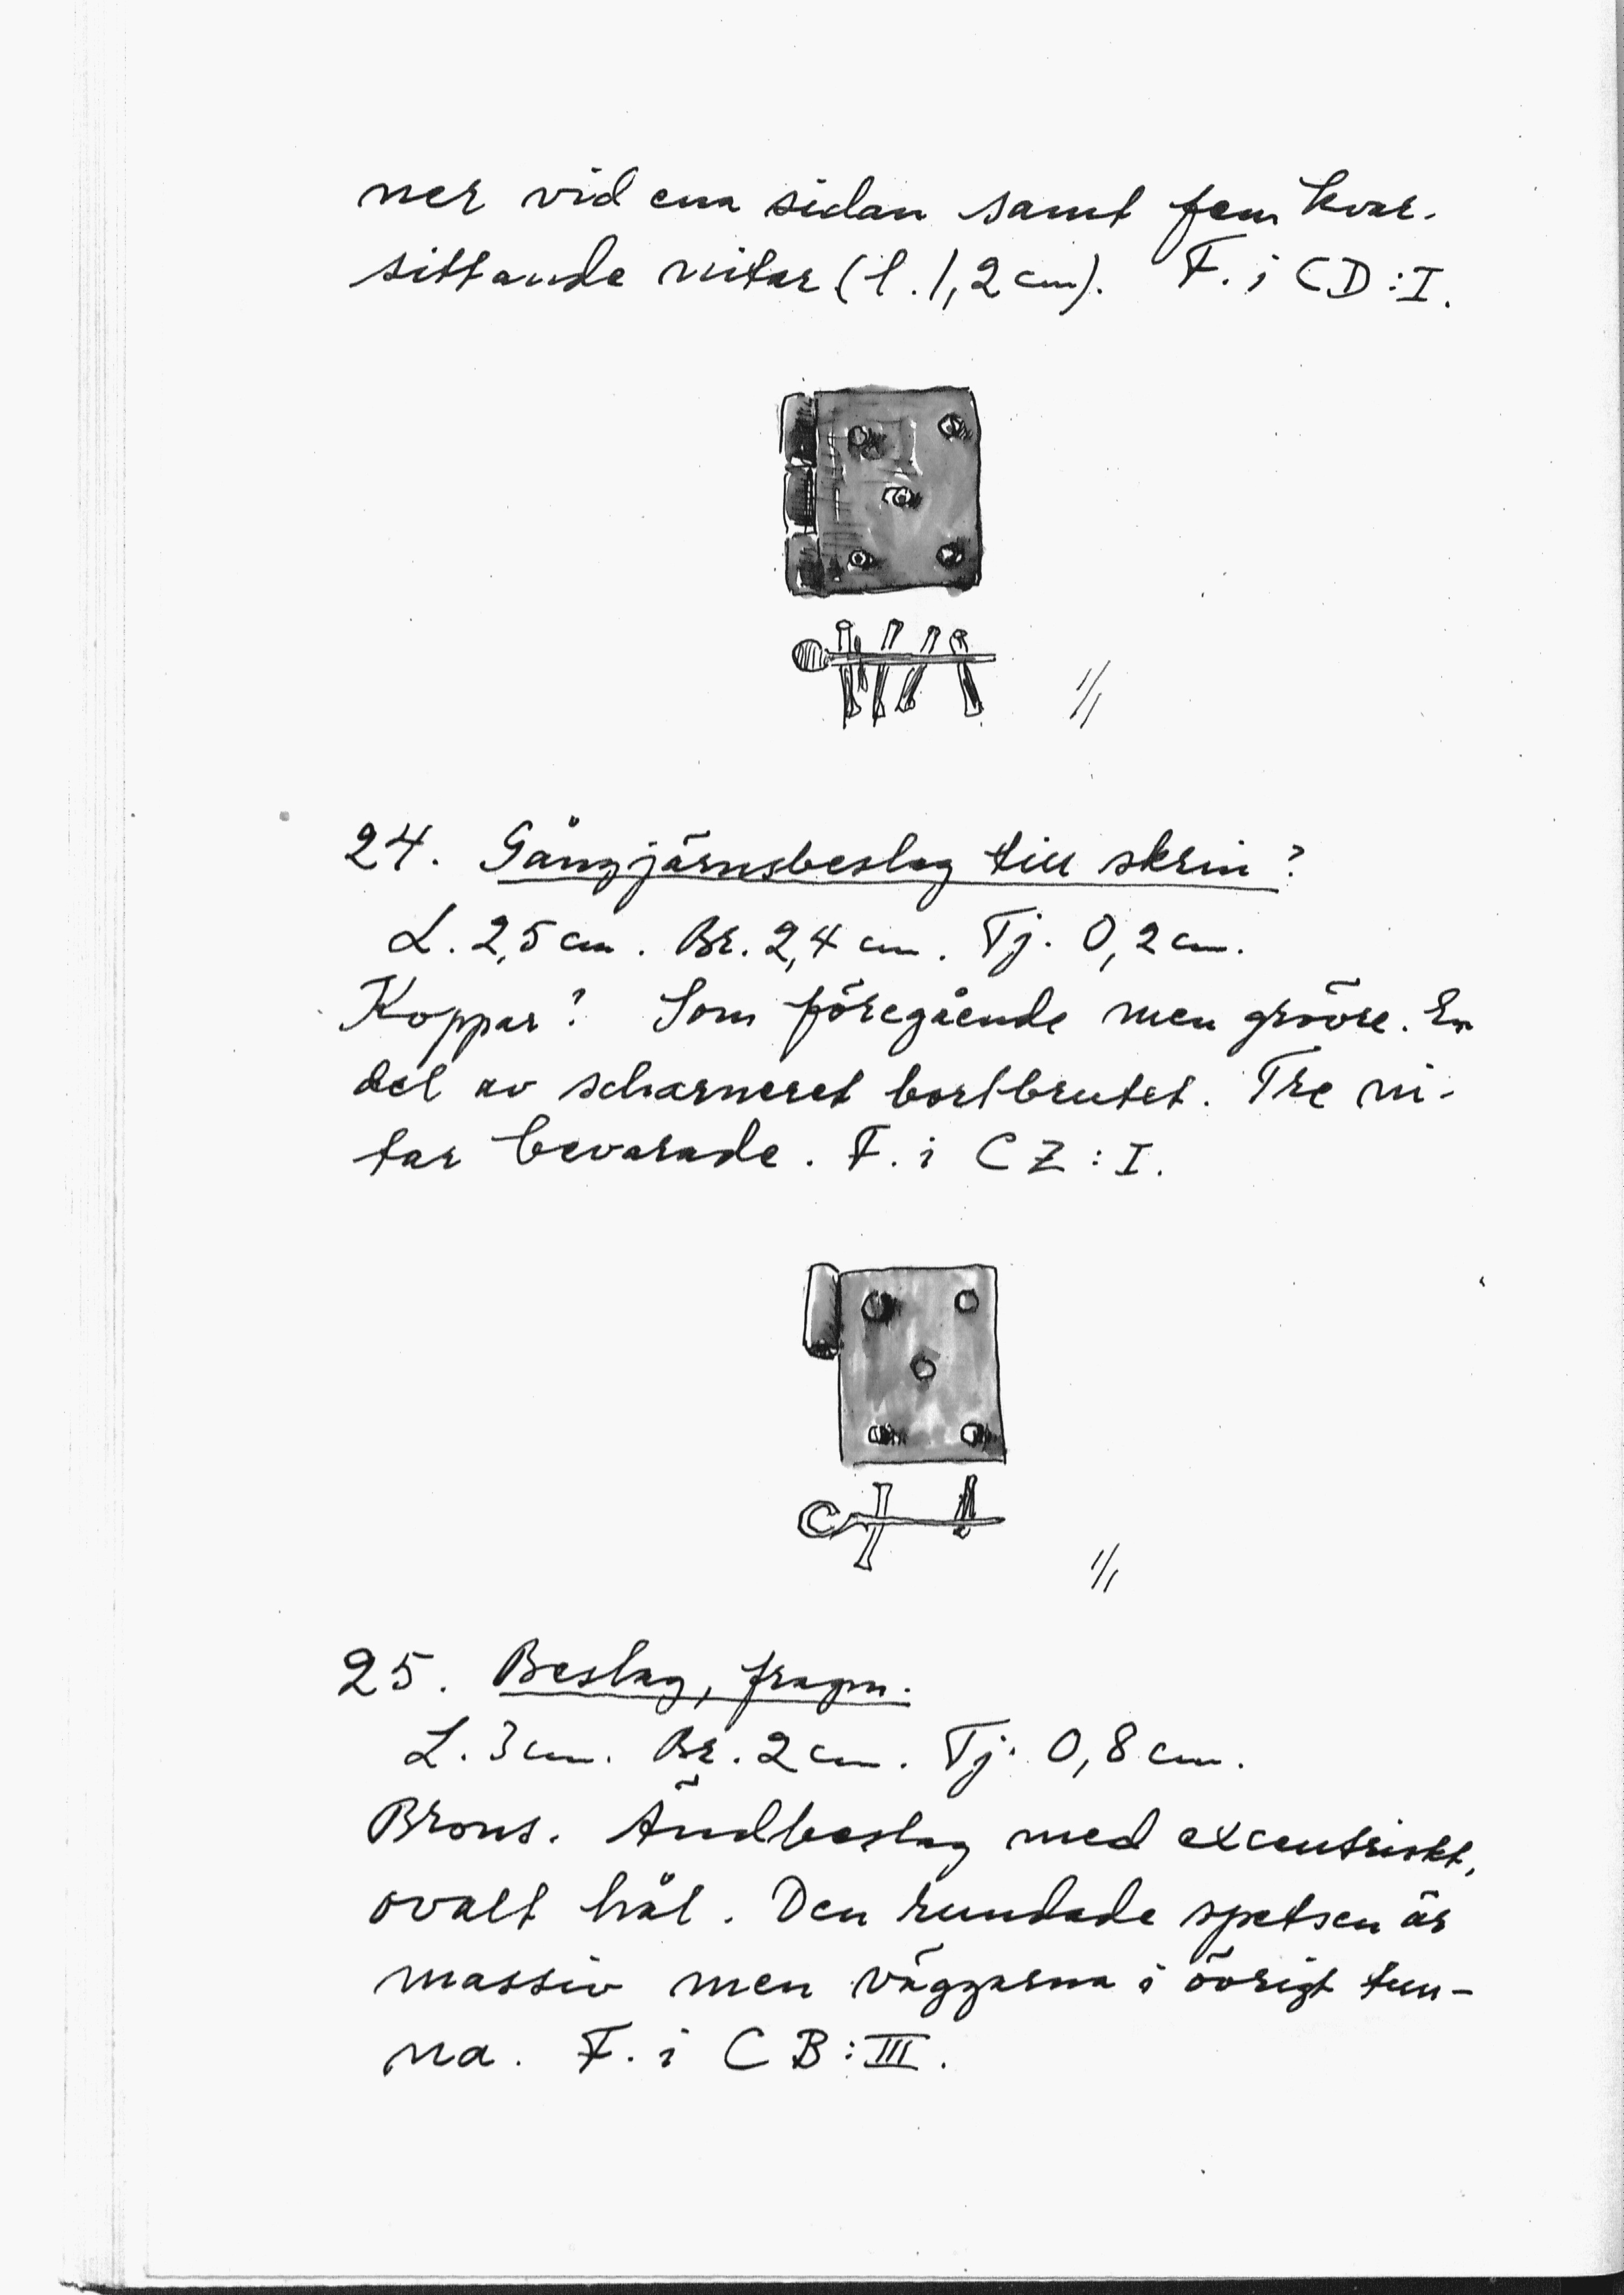 ner vid ena sidan samt fem kvar-
sittande nitar (l. 1,2 cm). F. i CD:I.
1/1
24. Gångjärnsbeslag till skrin?
L. 2,5 cm. Br. 2,4 cm. Tj. 0,2 cm.
Koppar? Som föregående men grövre. En
del av scharneret bortbrutet. Tre ni-
tar bevarade. F. i CZ:I.
1/1
25. Beslag, fragm.
L. 3 cm. Br. 2 cm. Tj. 0,8 cm.
Brons. Ändbeslag med excentriskt,
ovalt hål. Den rundade spetsen är
massiv men väggarna i övrigt tun-
na. F. i CB:III.